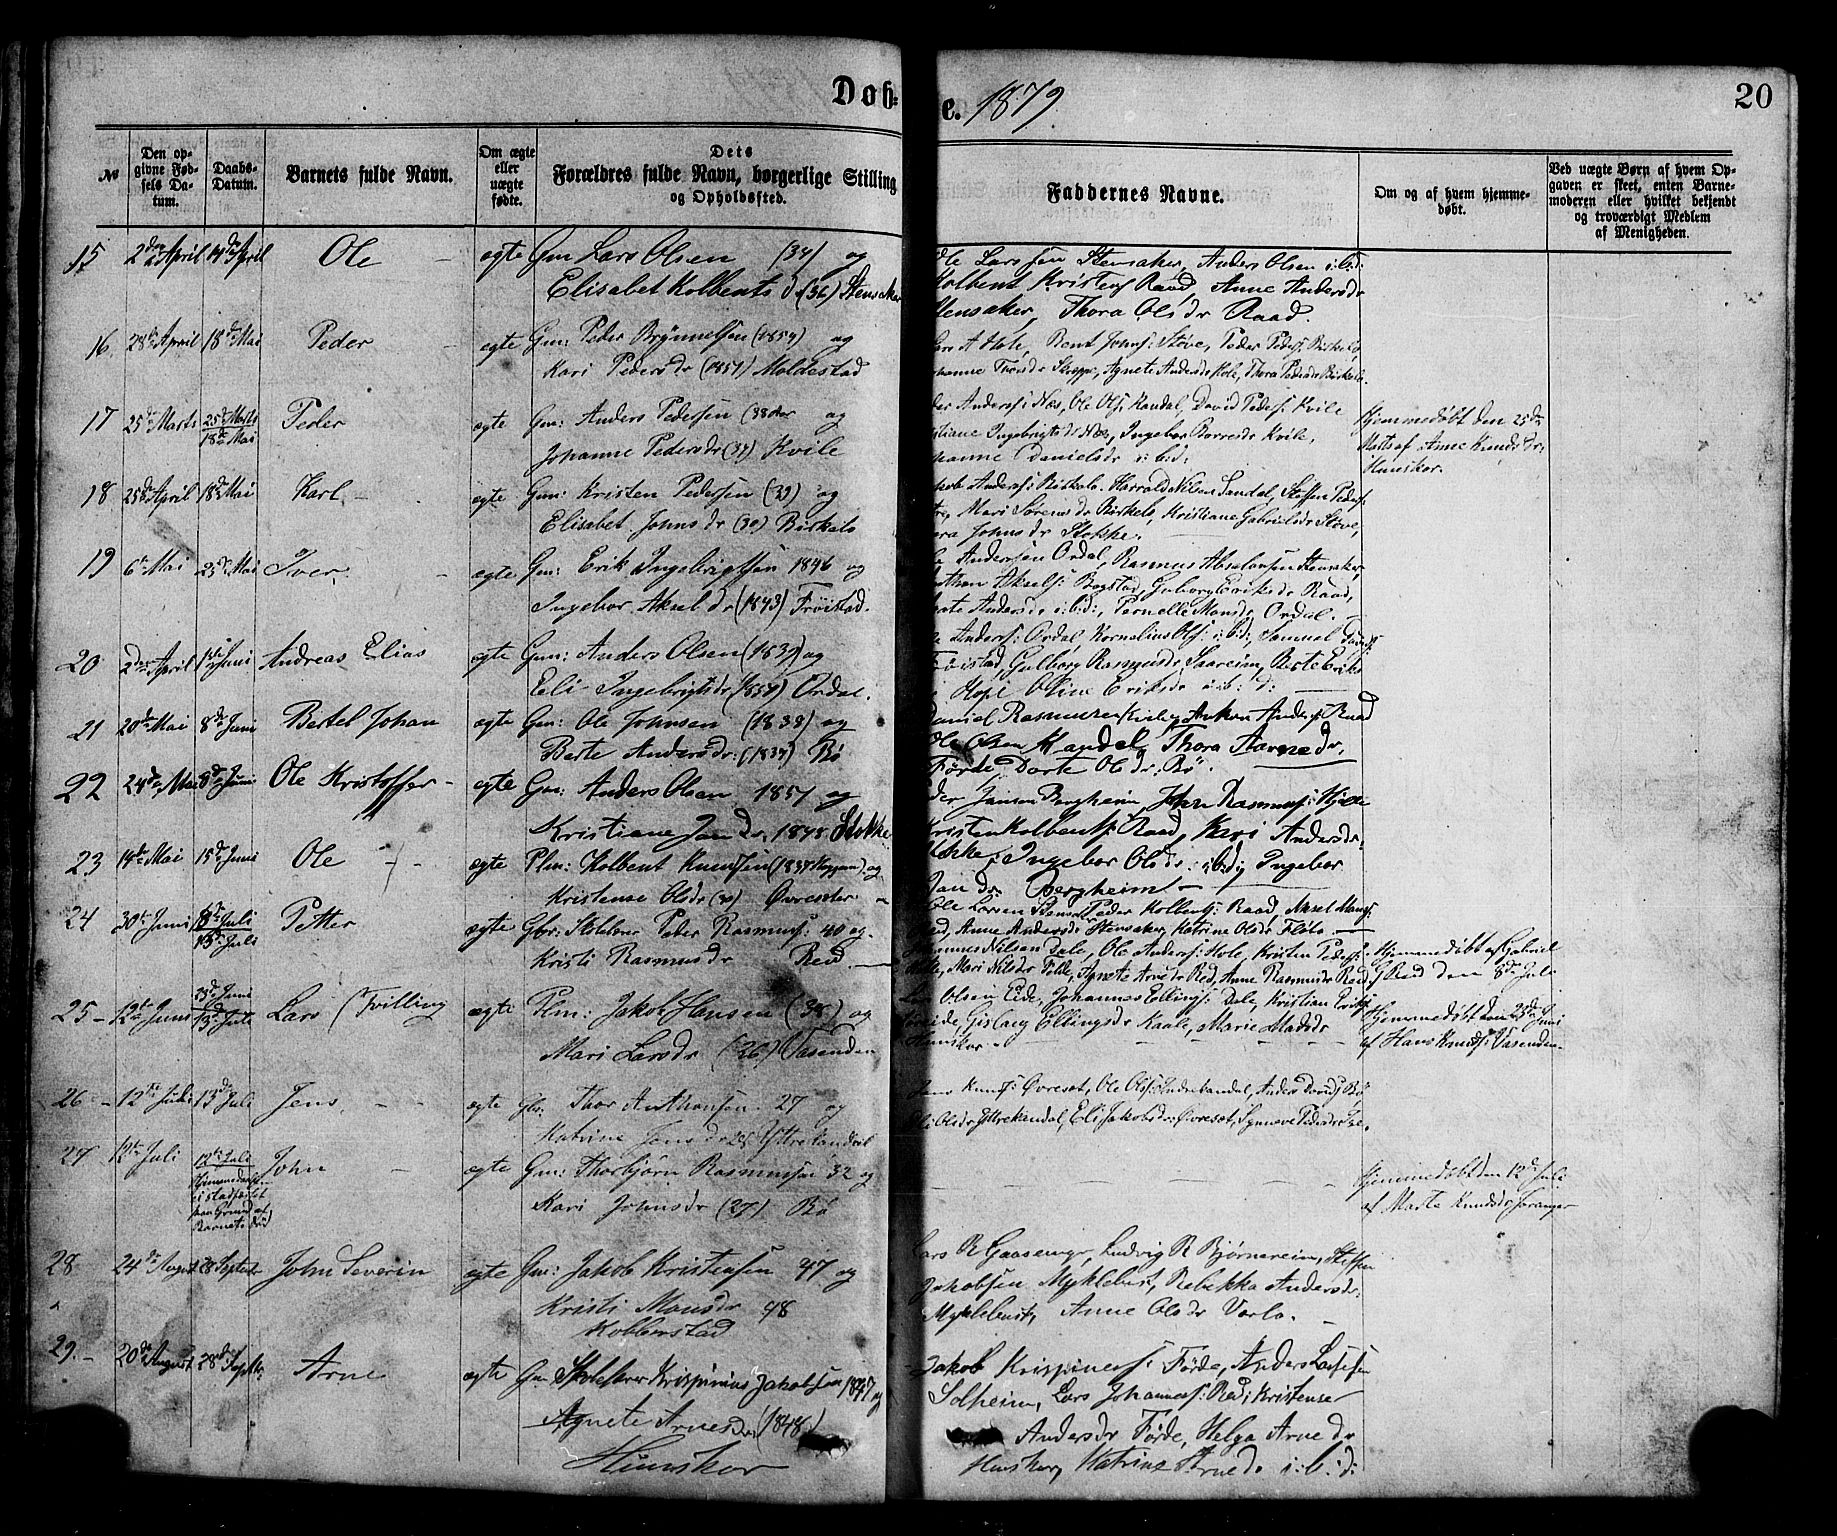 Døb=
e. 1879
20
№
Den op-
givne Fød-
sels Da-
tum.
Daabs-
Datum.
Barnets fulde Navn.
Om ægte
eller
uægte
fødte.
Dets
Forældres fulde Navn, borgerlige Stilling
og Opholdssted.
Faddernes Navne.
Om og af hvem hjemme-
døbt.
Ved uægte Børn af hvem Op-
gaven er skeet, enten Barne-
moderen eller hvilket bekjendt
og troværdigt Medlem
af Menigheden.
15 2den April 14de April Ole - ægte Gm Lars Olsen (34) og
Elisabet Kolbents d. (36) Stensaker
Ole Larssen Stensaker, Anders Olsen i:b:d:
Kolbent Kristens Raad, Anne Andersdr
Stensaker, Thora Olsdr Raad.
16. 28de April 18de Mai Peder - ægte Gm: Peder Brynnelsen (1854) og
Kari Pedersdr (1851) Moldestad
Lars A Hole, Bent Johns: Støve, Peder Peders: Birkelo
Johanne Skoppe, Agnete Andersdr Hole, Thora Pedersdr Birkelo.
17 25de Marts 25de Marts
18de Mai Peder ægte Gm: Anders Pedersen (38 og
Johanne Pedersdr (34) Kvile
Anders: Næs, Ole Ols: Kandal, David Peders: Kvile
Kristiane Ingebrigtsdr Næs, Ingebor Kvile,
Johanne Danielsdr i:b:d:
Hjemmedøbt den 25de
Marts af Anne Knudsdr:
Hunskor.
18 25de April 18de Mai Karl - ægte Gm: Kristen Pedersen (39) og
Elisabet Johnsdr (30) Birkelo
Jakob Anders: Birkelo. Harrald Nilsen Sandal, Steffen Peders:
Mari Sørensdr Birkelo, Kristiane Gabrielsdr Støve,
Johnsdr Stokke.
19 6te Mai 25de Mai Iver - ægte Gm: Erik Ingebrigtsen 1846 og
Ingebor Aksel dr (1843) Frøistad.
Andersen Ordal, Rasmus Absalonsen Stensaker,
Aksels: Bogstad, Guborg Eriksdr Raad,
Andersdr i:b:d:, Pernelle Monsdr Ordal.
20 2den April 1ste Juni Andreas Elias ægte Gm: Anders Olsen (1839) og
Eli Ingebrigtsdr (1854) Ordal.
Anders: Ordal, Kornelius Ols: i:b:d:, Samuel
Frøistad, Gulborg Rasmusdr Saareim, Berte Eriks
Hope Oline Eriksdr i:b:d:
21 20de Mai 8de Juni Bertel Johan ægte Gm: Ole Johnsen (1838) og
Berte Andersdr: (1834) Bø
Daniel Rasmussen Anders: Raad
Ole Olsen Kandal, Thora Aarnedr,
Førde Dorte Olsdr: Bø.
22 24de Mai 8de Juni Ole Kristoffer - ægte Gm: Anders Olsen 1851 og
Kristiane Jansdr. 1848 Stokke
Peder Jansen Bergheim, John Rasmuss: Hjelle
Kristen Kolbents: Raad, Kari Andersdr.
Stokke, Ingebor Olsdr: i:b:d: Ingebor
Jansdr. Bergheim
23 14de Mai 15de Juni Ole - ægte Plm: Kolbent Knudsen (1837 og
Kristense Olsdr (30) Øvreseter
Ole Larsen Stensaker Peder Kolbents: Raad, Aksel Mons:
Anne Andersdr Stensaker, Katrine Olsdr Fløto.
24 30te Juni 8de Juli
13de Juli Petter ægte Gbr: Skolelærer Peder Rasmuss: 40 og
Kristi Rasmusdr Red.
Johannes Nilsen Dale, Ole Anders: Hole, Kristen Peders:
Mari Nilsdr Felde, Agnete Arnedr Red, Anne Rasmusdr Red
Hjemmedøbt af Gabriel
G Red den 8de Juli
25 - 12te Juni 23de Juni
13de Juli Lars (Tvilling ægte Plm: Jakob Hansen (38) og
Mari Larsdr (26) Vasenden
Olsen Eide, Johannes Ellings: Dale, Kristian Eriks:
Gislaug Ellingsdr Kaale, Marie Madsdr
Hunskor -
Hjemmedøbt den 23de Juni
af Hans Knuds: Vasenden
26 - 12te Juli 13de Juli Jens. - - ægte Gbr. Thor Anthonsen. 27 og
Katrine Jensdr 25 Yttrekandal
Jens Knuds: Øvreset, Ole Ols: Indrekandal, Anders Davids: Bø
Olsdr Yttrekandal, Eli Jakobsdr: Øvreset, Synneve Pedersdr
27 12te Juli 12te Juli
paa Grund af
Barnets Død John - ægte Gm: Thorbjørn Rasmussen 32 og
Kari Johnsdr (27) Bø
Hjemmedøbt den 12te Juli
af Marte Knudsdr Foranger
28 24de August 28 Septebr John Severin ægte Gm: Jakob Kristensen 47 og
Kristi Monsdr 48
Kobberstad
Lars R Gaasemyr, Ludvig R Bjørnereim, Steffen
Jakobsen Myklebust, Rebekka Andersdr:
Myklebust, Anne Olsdr Vorlo.
29. - 20de August 28de Septbr. Arne ægte Gm Skolelærer Krispinius Jakobsen 1847 og
Agnete Arnesdr (1848)
Hunskor
Jakob Krispinuss: Førde, Anders Lassesen
Solheim, Lars Johannes: Red, Kristense
Andersdr Førde, Helga Arne dr
Hunskor, Katrine Arnedr i:b:d: